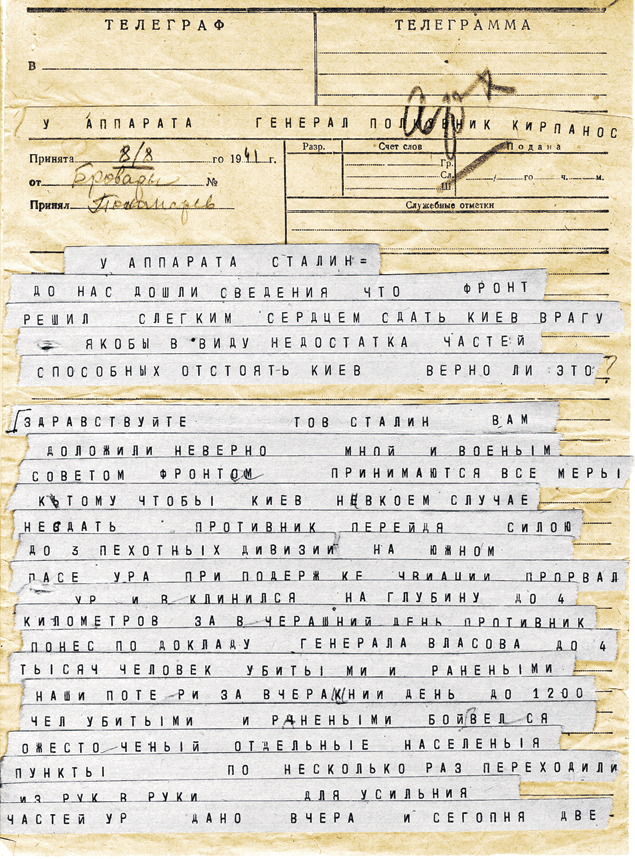 ТЕЛЕГРАФ
ТЕЛЕГРАММА
В
У АППАРАТА ГЕНЕРАЛ ПОЛКОВНИК КИРПАНОС
Принята 8/8 го 1941 г.
от Бровары №
Принял Пономарев
Разр. Счет слов Подана
Гр.
Сл. / го ч. м.
Ш
Служебные отметки
У АППАРАТА СТАЛИН=
ДО НАС ДОШЛИ СВЕДЕНИЯ ЧТО ФРОНТ
РЕШИЛ СЛЕГКИМ СЕРДЦЕМ СДАТЬ КИЕВ ВРАГУ
ЯКОБЫ В ВИДУ НЕДОСТАТКА ЧАСТЕЙ
СПОСОБНЫХ ОТСТОЯТЬ КИЕВ ВЕРНО ЛИ ЭТО?
ЗДРАВСТВУЙТЕ ТОВ СТАЛИН ВАМ
ДОЛОЖИЛИ НЕВЕРНО МНОЙ И ВОЕНЫМ
СОВЕТОМ ФРОНТОМ ПРИНИМАЮТСЯ ВСЕ МЕРЫ
К ТОМУ ЧТОБЫ КИЕВ НЕВКОЕМ СЛУЧАЕ
НЕСДАТЬ ПРОТИВНИК ПЕРЕЙДЯ СИЛОЮ
ДО 3 ПЕХОТНЫХ ДИВИЗИИ НА ЮЖНОМ
ПАСЕ УРА ПРИ ПОДЕРЖ КЕ ЧВИАЦИИ ПРОРВАЛ
УР И В КЛИНИЛСЯ НА ГЛУБИНУ ДО 4
КИЛОМЕТРОВ ЗА В ЧЕРАШНИЙ ДЕНЬ ПРОТИВНИК
ПОНЕС ПО ДОКЛАДУ ГЕНЕРАЛА ВЛАСОВА ДО 4
ТЫСЯЧ ЧЕЛОВЕК УБИТЫ МИ И РАНЕНЫМИ
НАШИ ПОТЕ РИ ЗА ВЧЕРА НИЙ ДЕНЬ ДО 1200
ЧЕЛ УБИТЫМИ И РАНЕНЫМИ БОЙ ВЕЛ СЯ
ОЖЕСТО ЧЕНЫЙ ОТДЕЛЬНЫЕ НАСЕЛЕНЫЯ
ПУНКТЫ ПО НЕСКОЛЬКО РАЗ ПЕРЕХОДИЛИ
ИЗ РУК В РУКИ ДЛЯ УСИЛЬНИЯ
ЧАСТЕЙ УР ДАНО ВЧЕРА И СЕГОПНЯ ДВЕ-